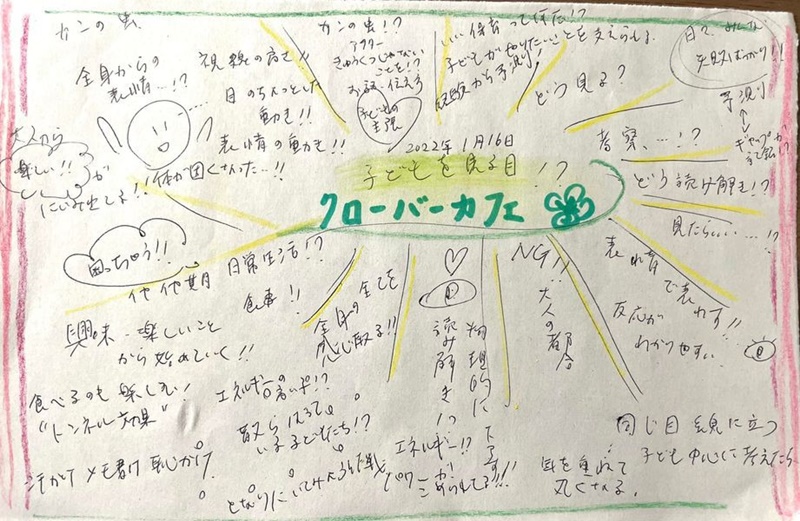 カンの虫
全身からの
表情…!?
視線の高さ
目のちょっとした
動き!!
表情の動き!!
体が固くなった…!!
大人から
楽しい!!が
にじみ出てしる!!
カンの虫!?
アラー
きゅうくつじゃない
ことを!?
お話・伝え方
子どもの
主張
いい保育って何だ!?
子どもがやりたいことを支えられる
経験から予測!
どう見る?
日々、みんな
失敗ばっかり!!
予測
ギャップが
考察、…!?
どう読み解き!?
見たらいい…!?
2022年1月16日
子どもを見る目!?
クローバーカフェ
困っちゃう!!
日常生活!?
食事!!
興味・楽しいこと
から始めていく!!
食べるのも楽しむ!
"トンネル効果"
汗かけ メモ書け 恥かけ
全身の全てを
感じ取る!!
エネルギーの高い所!?
散らばってる
子どもたち!?
となりにいてみる作戦
目
読み解き
物理的に
下げる!!
エネルギー!!
パワーが
こめられてる!!!
NG!!
大人の都合
表れ方
で表わす!!
反応が
わかりやすい
同じ目線に立つ
子ども中心に考えたら
耳を重ねて
丸くなる。